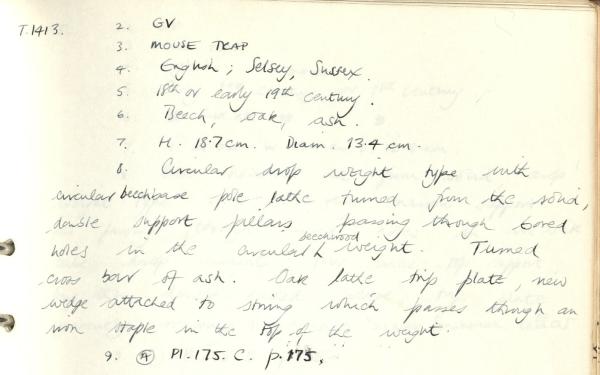 T.1413. 2. GV
3. MOUSE TRAP
4. English; Selsey, Sussex.
5. 18th or early 19th century.
6. Beech, oak, ash.
7. H. 18.7cm. Diam. 13.4 cm.
8. Circular drop weight type with
circular beechbase pole lathe turned from the solid,
double support pillars passing through bored
holes in the circular beechwood weight. Turned
cross bar of ash. Oak lathe trip plate, new
wedge attached to string which passes through an
iron staple in the top of the weight.
9. A Pl.175.C. p.175.